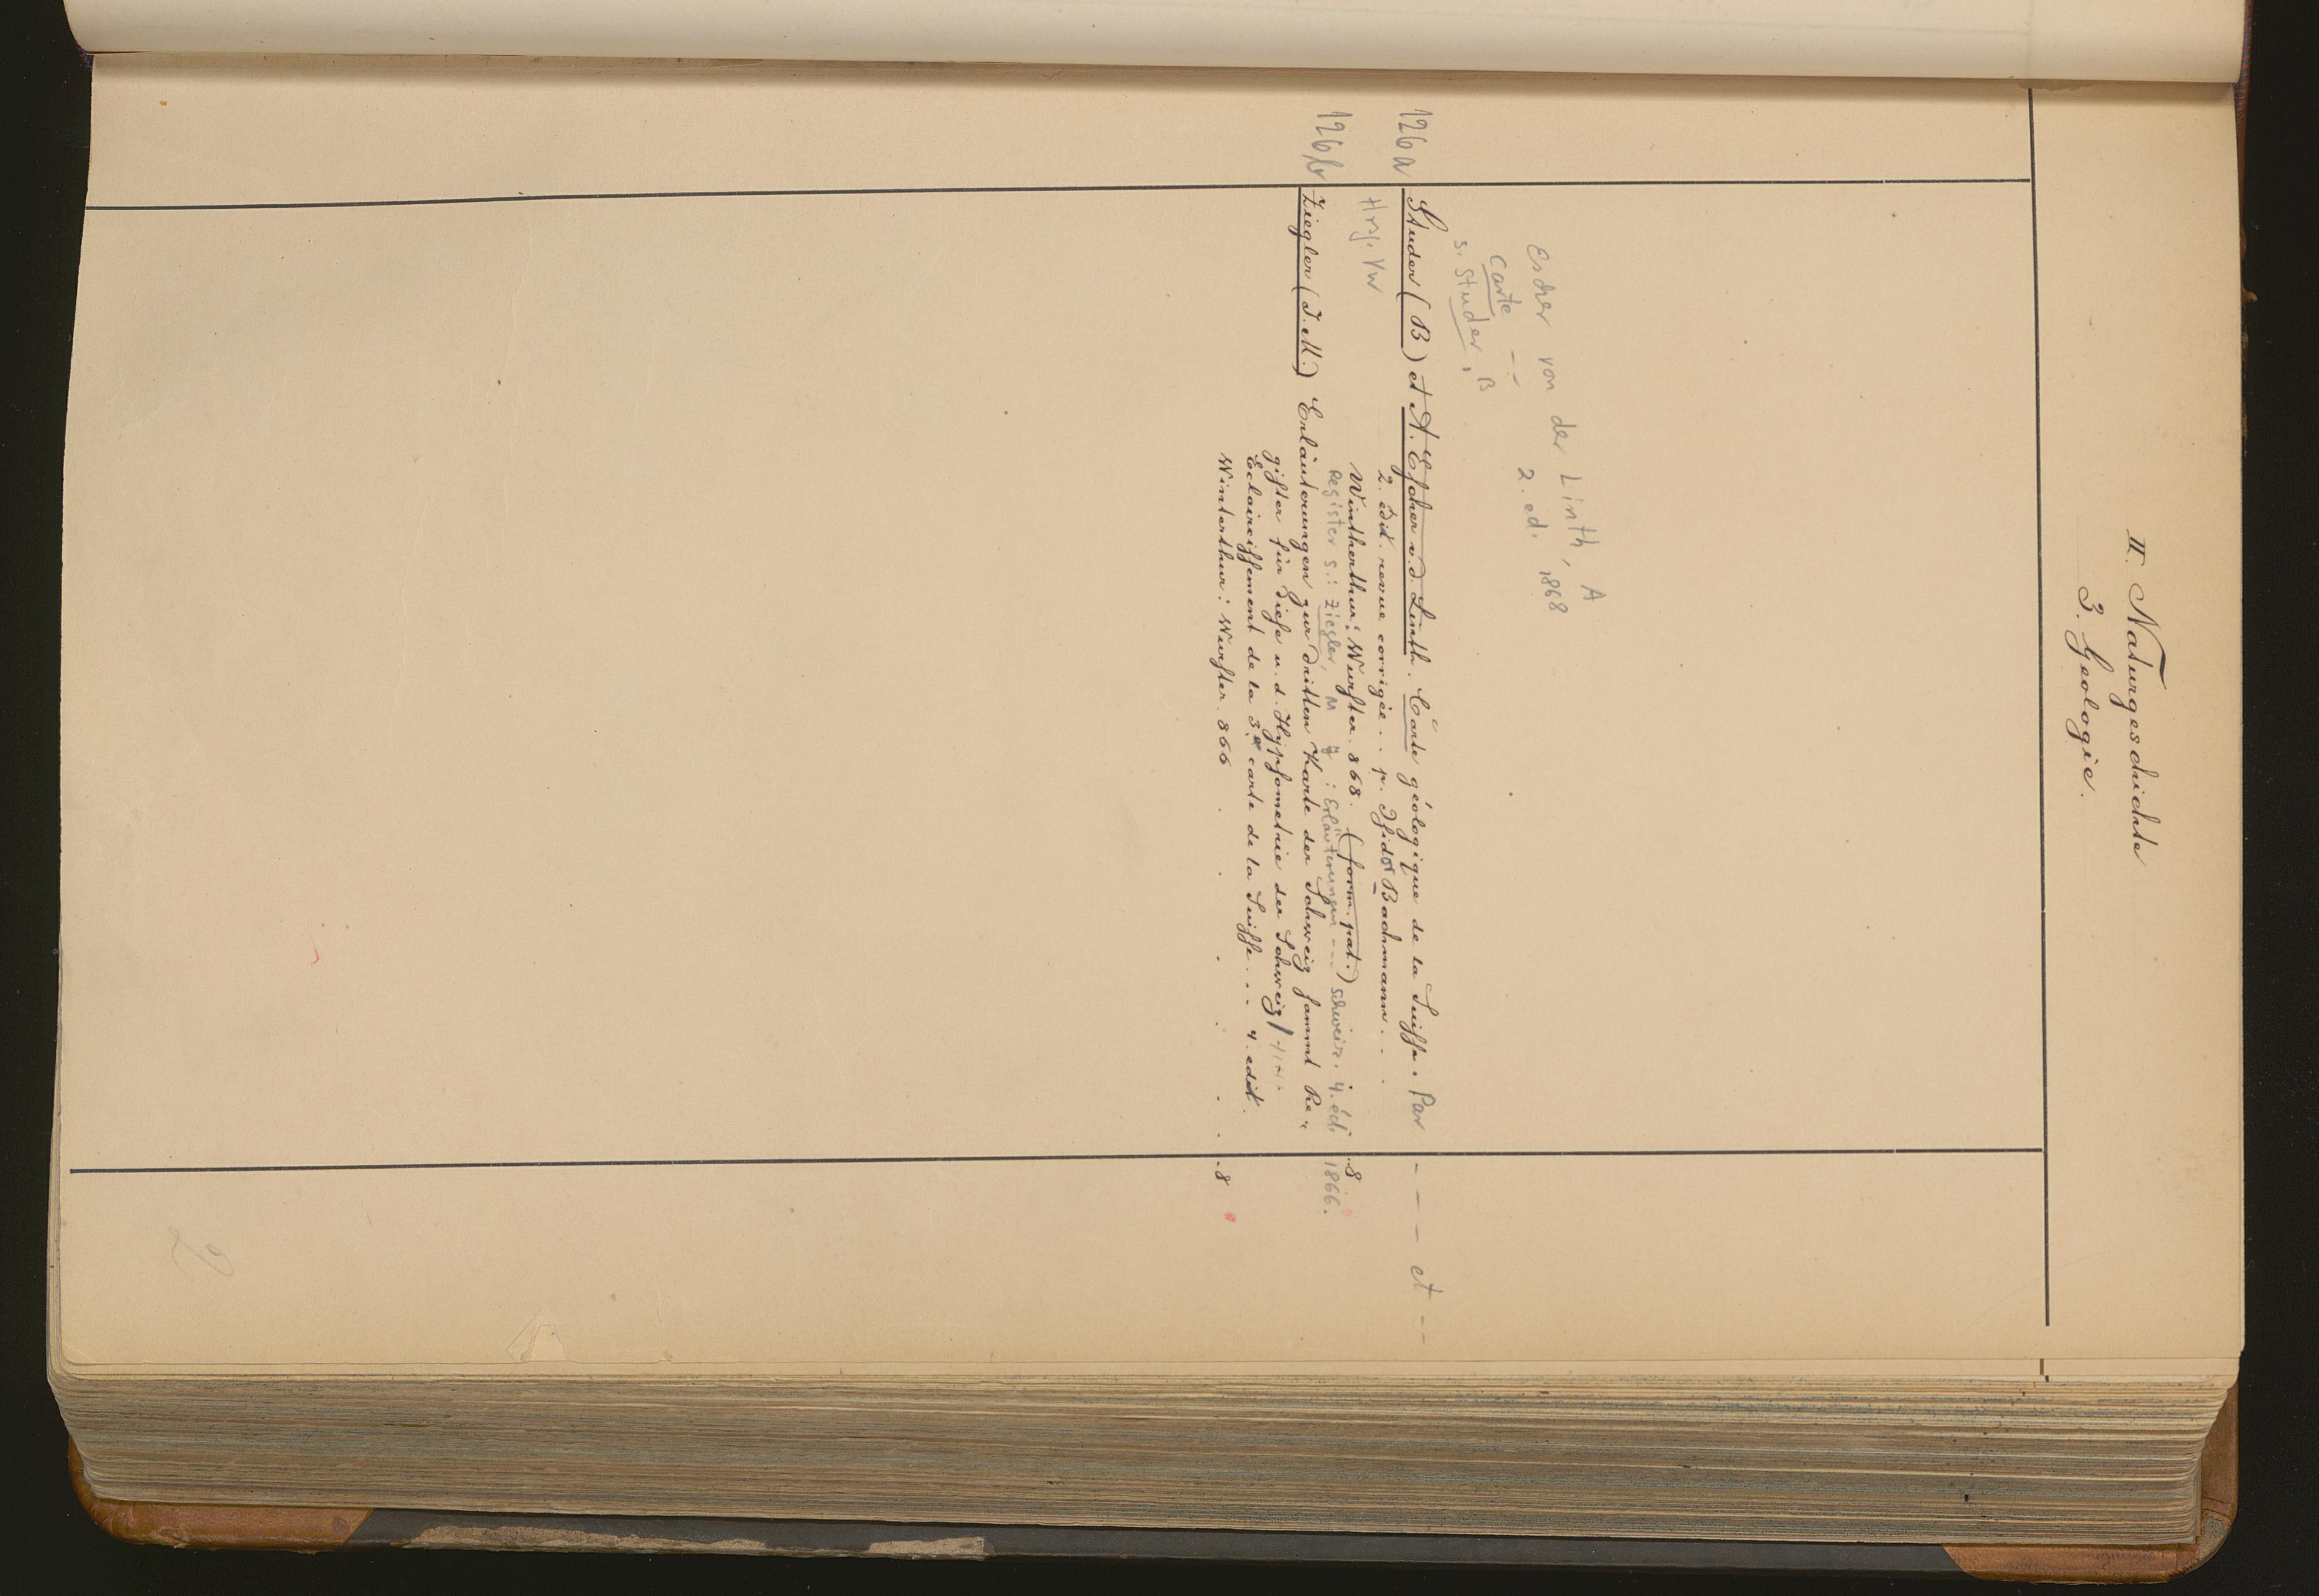 II. Naturgeschichte
3. Geologie.
Escher von der Linth, A
Carte - - 2. ed. 1868
s. Studer, B
126a Studer (B) et A. Escher v. d. Linth. Carte géologique de la Suisse. Par - - - et - -
2. édit. revue corrigée . . p. Isidor Bachmann . . .
Winterthur: Wurster. 868. (form. pat.) . 8
Register s.: Ziegler, M : Erläuterungen - - Schweiz. 4. éd. 1866.
126b Ziegler (J. M.) Erläuterungen zur dritten Karte der Schweiz sammt Re-
gister für diese u. d. Hypsometrie der Schweiz /
Eclaircissement de la 3e carte de la Suisse . . . 4. edit.
Winterthur: Wurster. 866 . . . . . . . 8
2